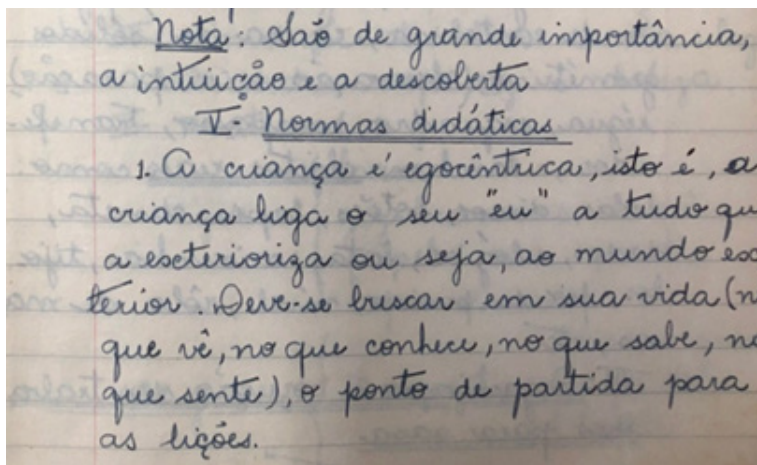 Nota: São de grande importância,
a intuição e a descoberta
V- Normas didáticas
1. A criança é egocêntrica, isto é, a
criança liga o seu "eu" a tudo qu
a exterioriza ou seja, ao mundo ex
terior. Deve-se buscar em sua vida (n
que vê, no que conhece, no que sabe, no
que sente), o ponto de partida para
as lições.